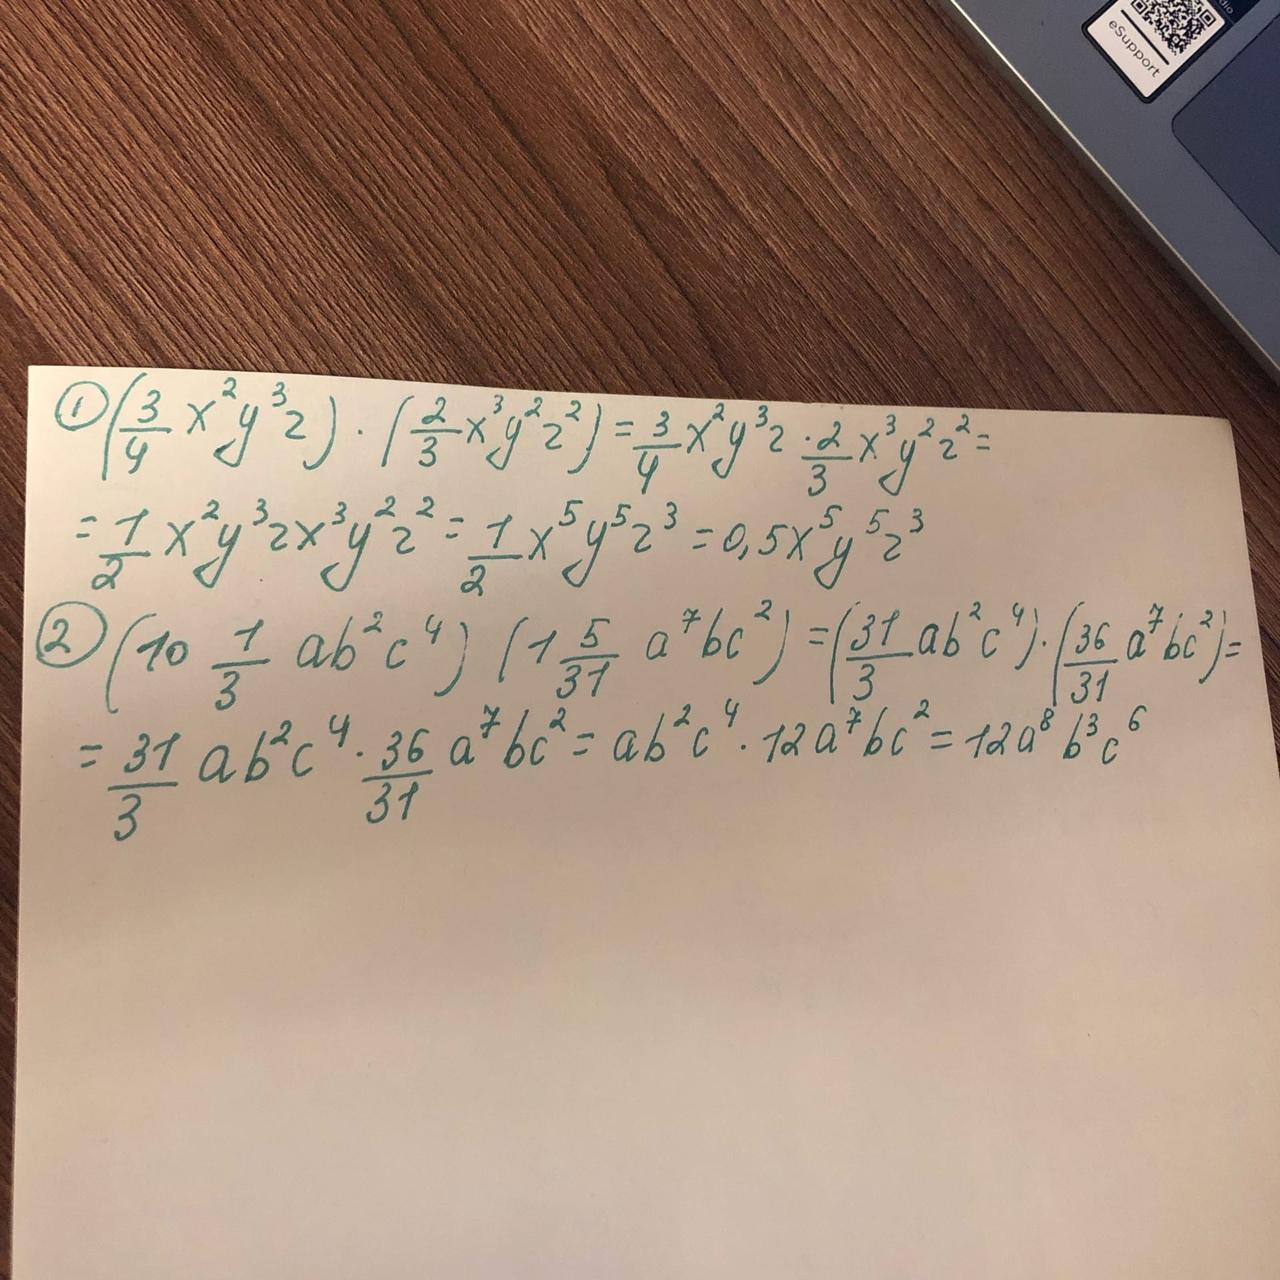 eSupport
① (3/4 x²y³z) · (2/3 x³y²z²) = 3/4 x²y³z · 2/3 x³y²z² =
= 1/2 x²y³zx³y²z² = 1/2 x⁵y⁵z³ = 0,5x⁵y⁵z³
② (10 1/3 ab²c⁴) (1 5/31 a⁷bc²) = (31/3 ab²c⁴) · (36/31 a⁷bc²) =
= 31/3 ab²c⁴ · 36/31 a⁷bc² = ab²c⁴ · 12a⁷bc² = 12a⁸b³c⁶